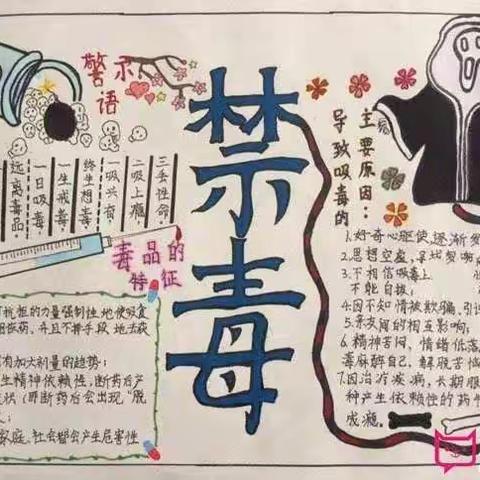 警示语
远离毒品
一日吸毒,
一生戒毒.
终生想毒,
一吸兴奋,
二吸上瘾,
三丢性命.
毒品的
特征
抗拒的力量强制性地使吸食
用药,并且不择手段地去获
有加大剂量的趋势;
生精神依赖性,断药后产
状(即断药后会出现"脱
家庭、社会都会产生危害性
禁毒
导致吸毒的
主要原因:
1.好奇心驱使,逐渐
2.思想空虚,寻找
3.不相信吸毒上
不能自拔;
4.因不知情被欺骗,引
5.亲友间的相互影响;
6.精神苦闷,情绪低落
毒麻醉自己,解脱苦
7.因治疗疾病,长期服
种产生依赖性的药
成瘾。